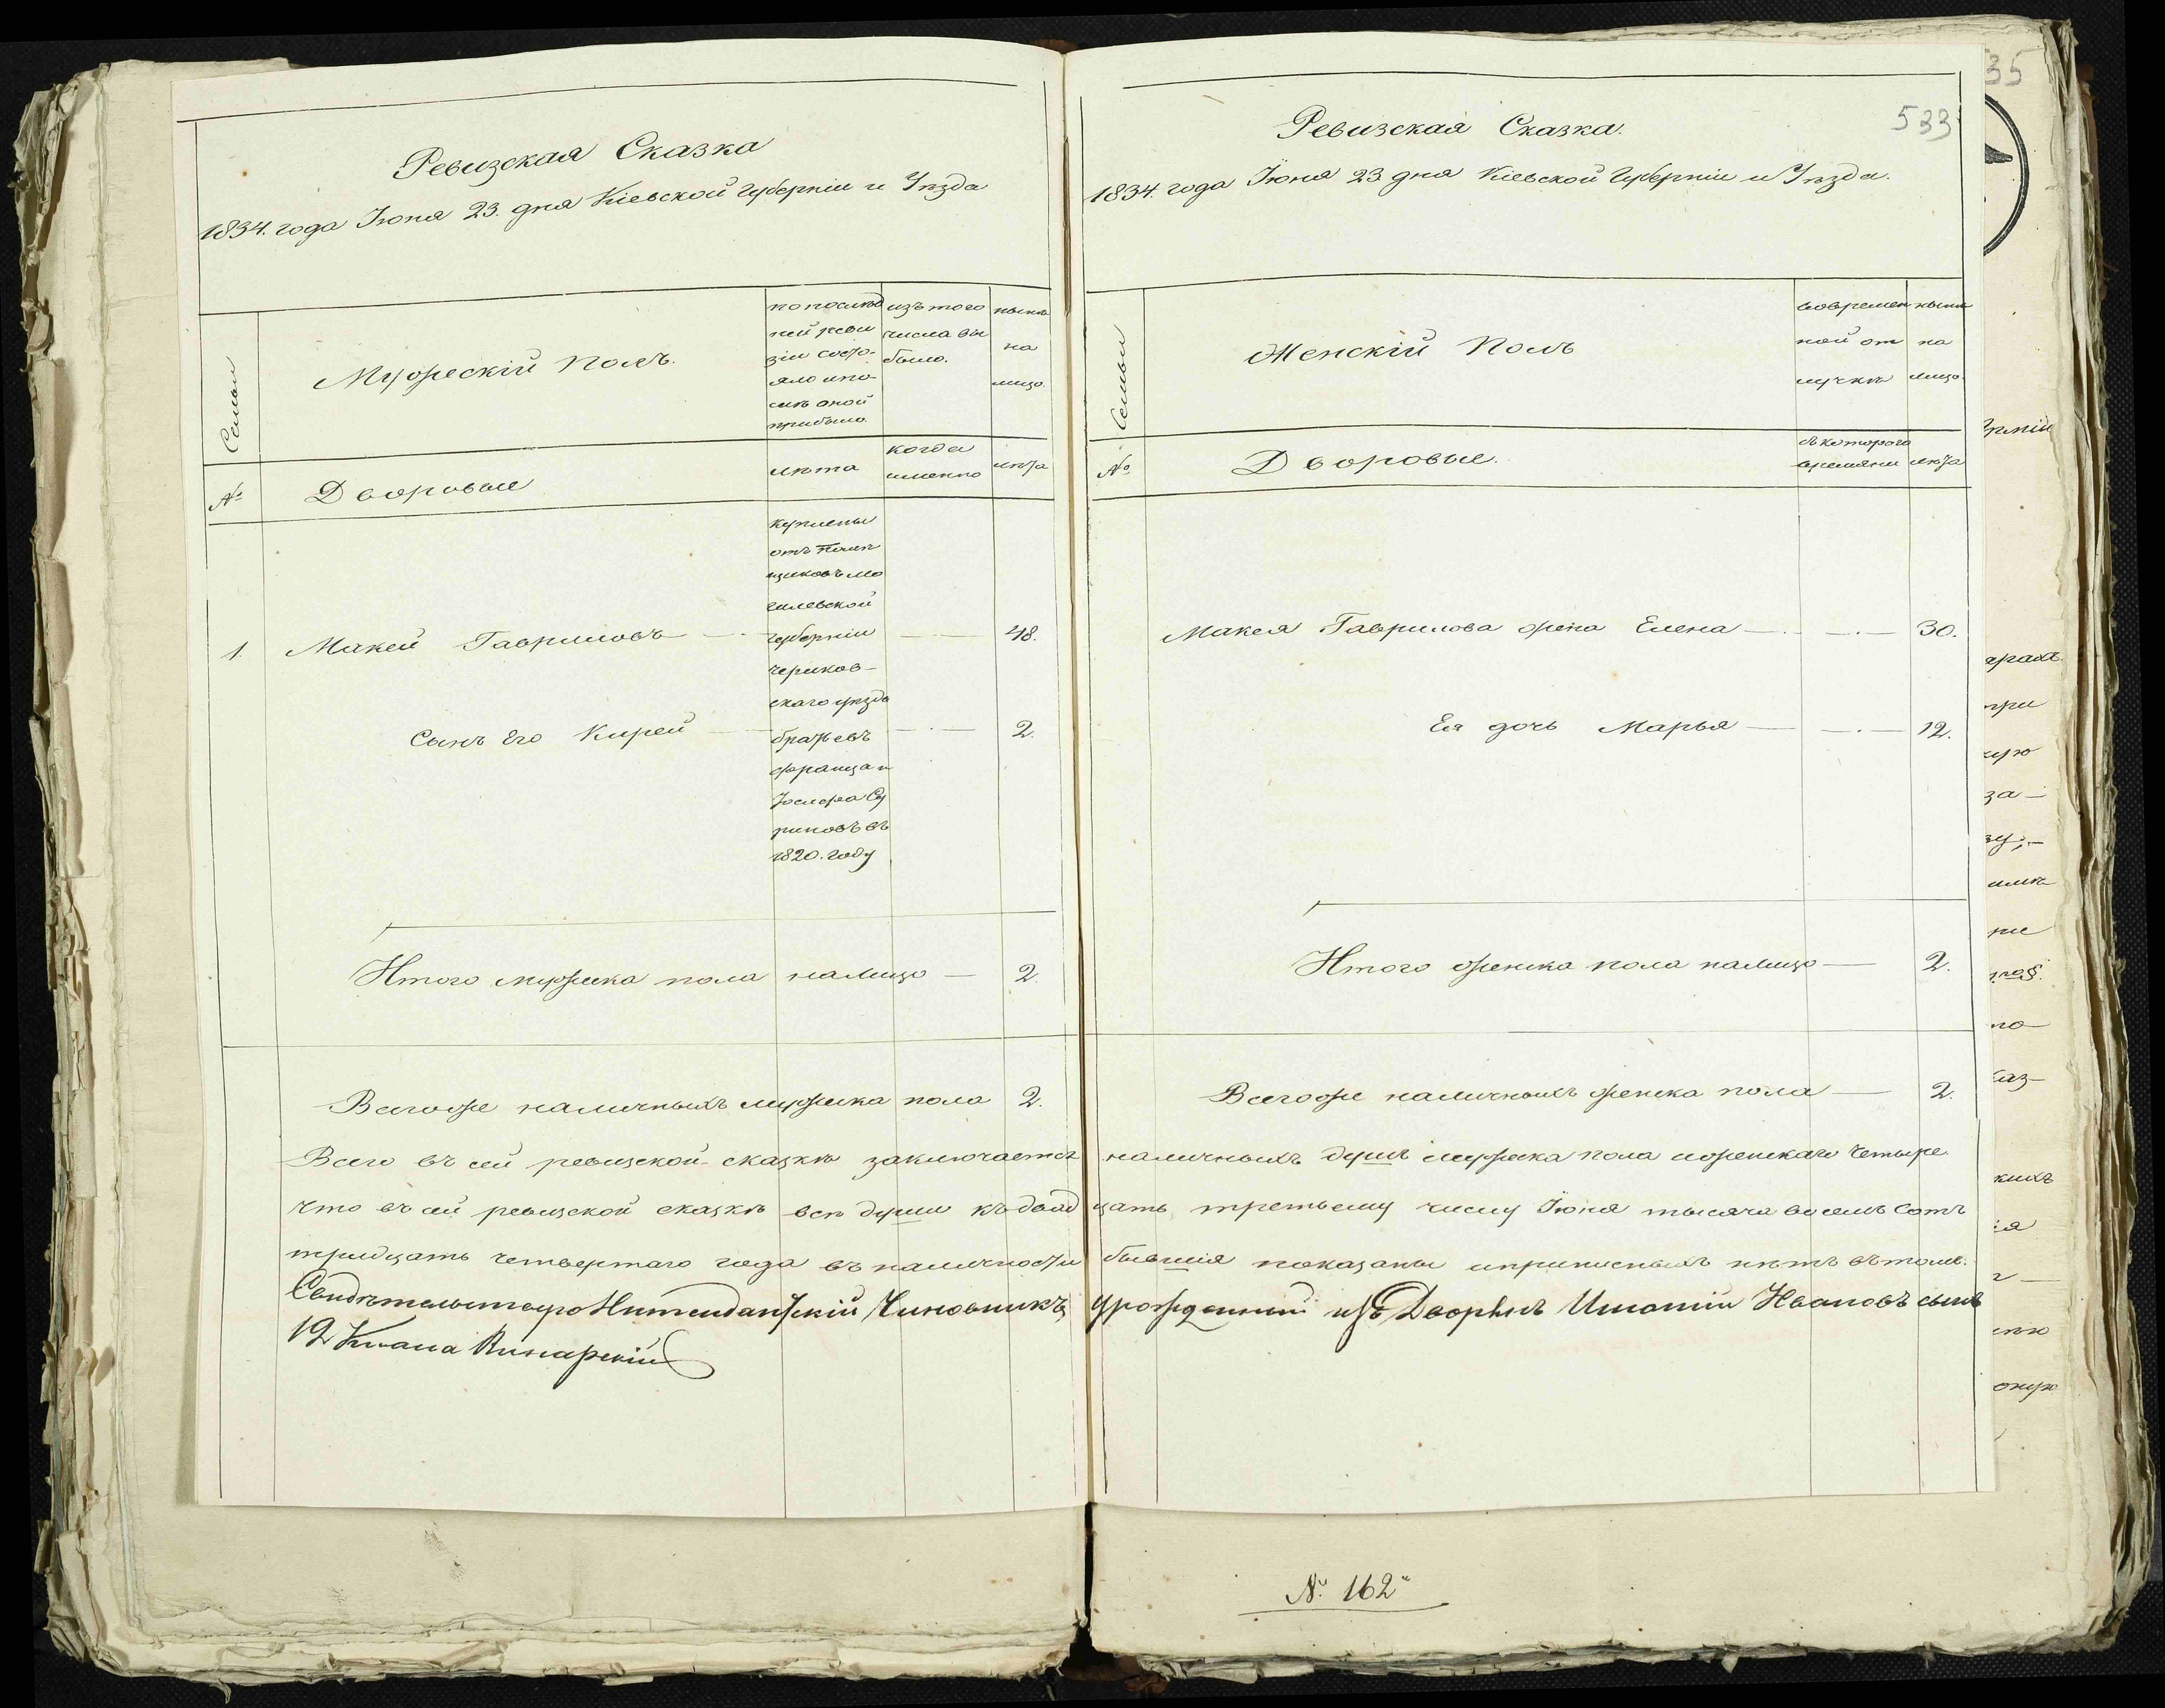 Ревизская Сказка
1834. года Іюня 23. дня Кіевской Губерніи и Уѣзда
Семьи
Мужескій Полъ.
по послѣд
ней реви
зіи состо-
яло и по-
слѣ оной
прибыло.
изъ того
числа вы
было.
нынѣ
на
лицо.
№
Дворовые
лѣта
когда
именно
лѣта
куплены
отъ помѣ
щиковъ мо
гилевской
губерніи
чериков-
скаго уѣзда
братьевъ
франца и
Іосифа Су
риновъ въ
1820. году
1. Макей Гавриловъ — 48.
Сынъ Его Кирей — 2.
Итого мужеска пола налицо — 2.
Всегоже наличныхъ мужеска пола 2.
Ревизская Сказка.
533
1834. года Іюня 23 дня Кіевской Губерніи и Уѣзда.
Семьи
Женскій Полъ
вовремен
ной от
лучкѣ
нынѣ
на
лицо.
№
Дворовые.
съ котораго
времяни
лѣта
Макея Гаврилова жена Елена — 30.
Ея дочь Марья — 12.
Итого женска пола налицо — 2.
Всегоже наличныхъ женска пола — 2.
Всего въ сей ревизской сказкѣ заключается наличныхъ душъ мужеска пола и женскаго четыре.
что въ сей ревизской сказкѣ всѣ души къ двад цать третьему числу Іюня тысяча восемь сотъ
тридцать четвертаго года въ наличности бывшія показаны и прописныхъ нѣтъ въ томъ.
Интендантскій Чиновникъ урожденный изъ Дворянъ Иванов сынъ
12 Класа
№ 162
35